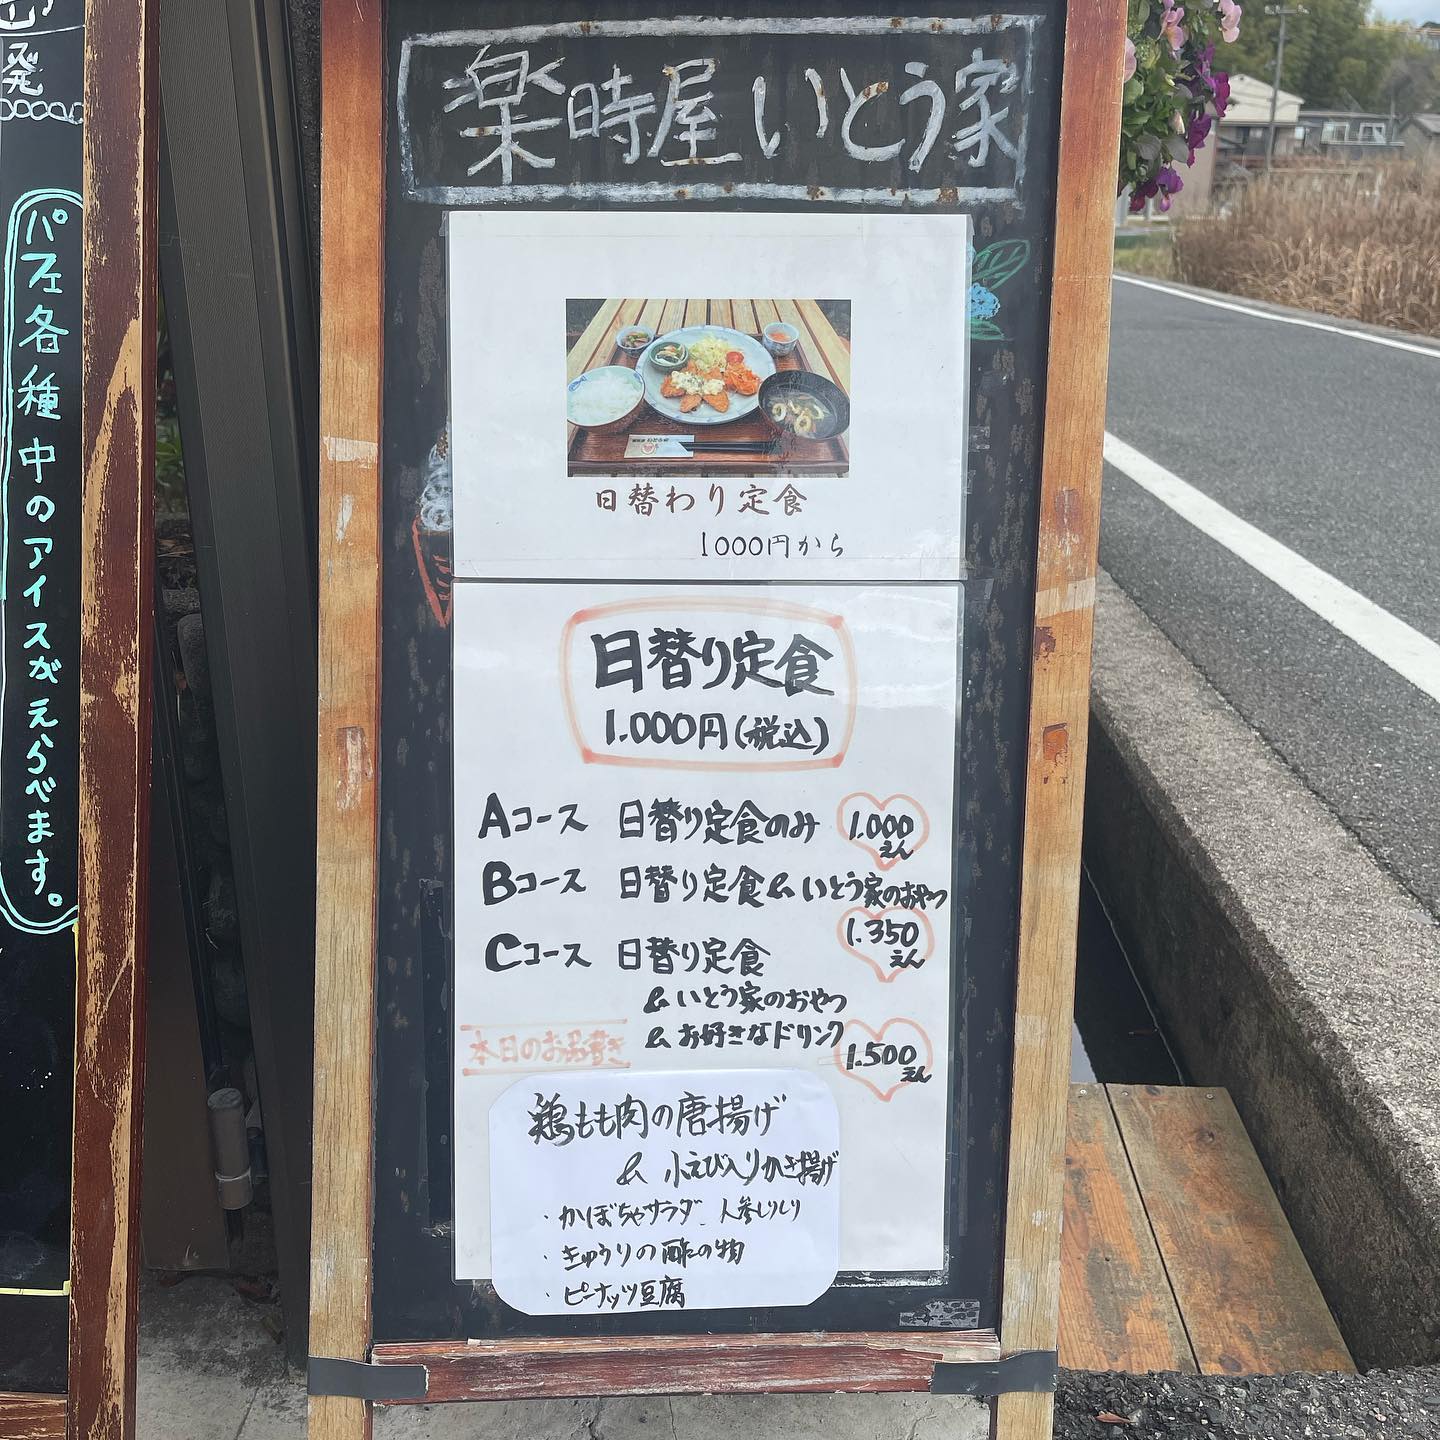 楽時屋いとう家
日替わり定食
1000円から
日替り定食
1.000円(税込)
Aコース 日替り定食のみ 1.000えん
Bコース 日替り定食&いとう家のおやつ
1.350えん
Cコース 日替り定食
&いとう家のおやつ
&お好きなドリンク
1.500えん
本日のお品書き
鶏もも肉の唐揚げ
& 小えび入りかき揚げ
・かぼちゃサラダ、人参しりしり
・きゅうりの酢の物
・ピーナッツ豆腐
発
パフェ各種中のアイスがえらべます。